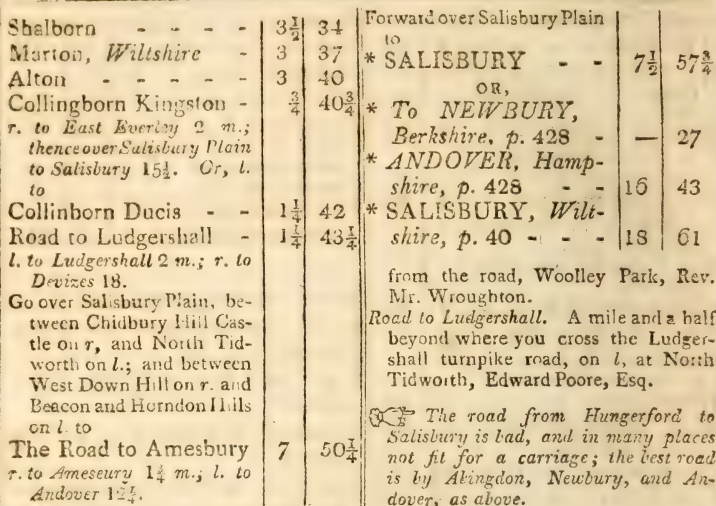 Shalborn - - - - 3½ 34
Marton, Wiltshire - 3 37
Alton - - - - - 3 40
Collingborn Kingston - ¾ 40¾
r. to East Everley 2 m.;
thence over Salisbury Plain
to Salisbury 15¼. Or, l.
to
Collinborn Ducis - - 1¼ 42
Road to Ludgershall - 1¼ 43¼
l. to Ludgershall 2 m.; r. to
Devizes 18.
Go over Salisbury Plain, be-
tween Chidbury Hill Cas-
tle on r, and North Tid-
worth on l.; and between
West Down Hill on r. and
Beacon and Horndon Hills
on l. to
The Road to Amesbury 7 50¼
r. to Ameseury 1¼ m.; l. to
Andover
Forward over Salisbury Plain
to
* SALISBURY - - 7½ 57¾
OR,
* To NEWBURY,
Berkshire, p. 428 - — 27
* ANDOVER, Hamp-
shire, p. 428 - - 16 43
* SALISBURY, Wilt-
shire, p. 40 - - - 18 61
from the road, Woolley Park, Rev.
Mr. Wroughton.
Road to Ludgershall. A mile and a half
beyond where you cross the Ludger-
shall turnpike road, on l, at North
Tidworth, Edward Poore, Esq.
☞ The road from Hungerford to
Salisbury is bad, and in many places
not fit for a carriage; the best road
is by Abingdon, Newbury, and An-
dover, as above.